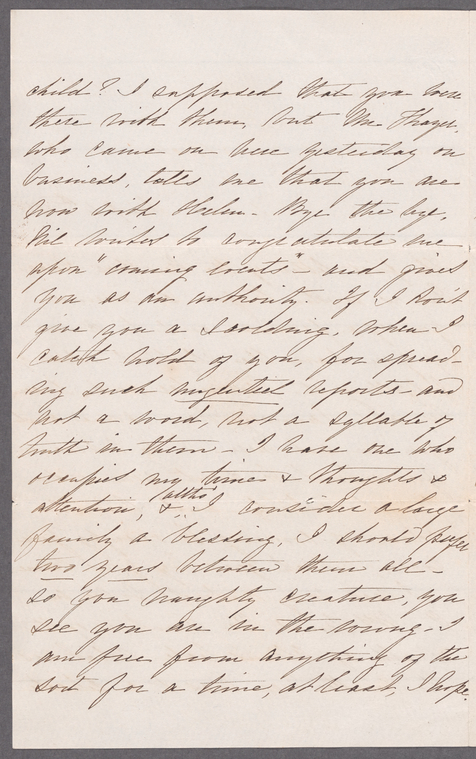 child? I supposed that you were
there with them, but Mr Thayer,
who came on here yesterday on
business, tells me that you are
now with Helen - Bye the bye,
writes to congratulate me
upon "coming events" - and gives
you as an authority. If I don't
give you a scolding, when I
catch hold of you, for spread-
ing such reports - and
not a word, not a syllable of
truth in them - I have one who
occupies my time & thoughts &
attention, & altho' I consider a large
family a blessing, I should prefer
two years between them all -
so you naughty creature, you
see you are in the wrong - I
am free from anything of the
sort for a time, at least, I hope.